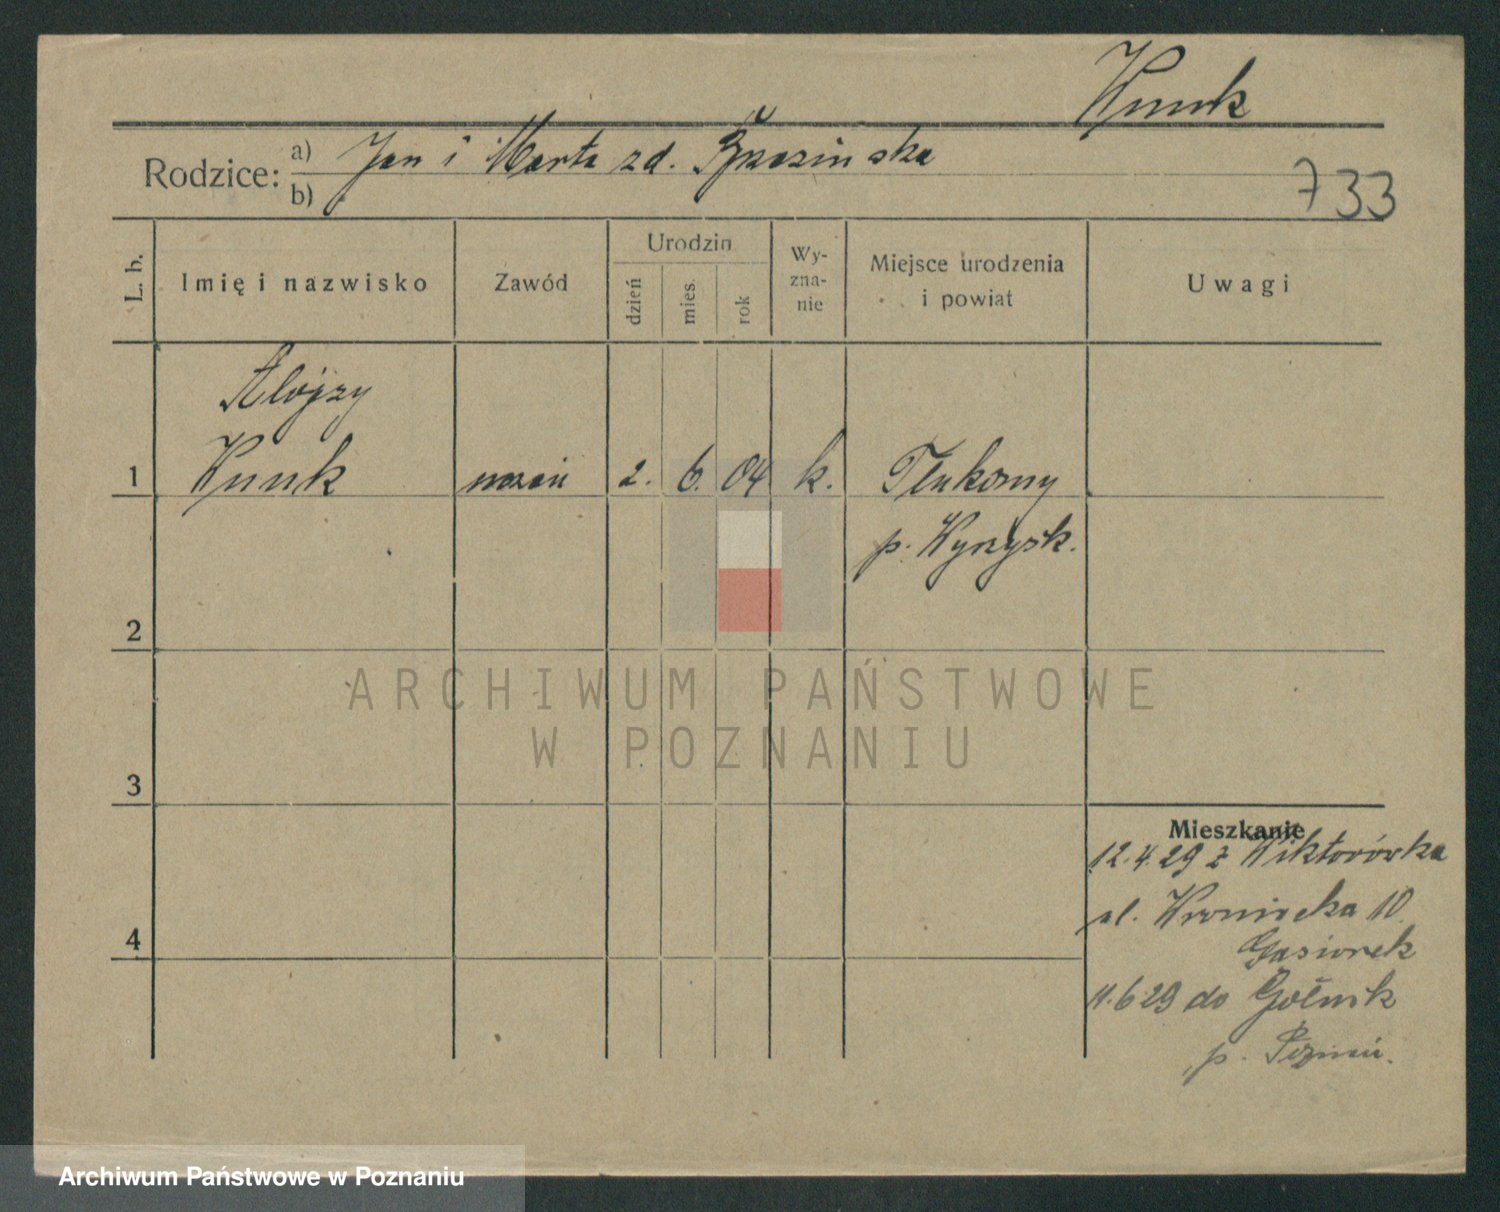 Kunk
Rodzice: a) Jan i Marta zd. Brzezińska
b)
733
L. b.
Imię i nazwisko
Zawód
Urodzin
dzień
mies.
rok
Wy-
zna-
nie
Miejsce urodzenia
i powiat
Uwagi
Alojzy
1 Kunk 2. 6. 04 k. Tłukomy
p. Wyrzysk.
2
ARCHIWUM PAŃSTWOWE
W POZNANIU
3
Mieszkanie
12.4.29 z Wiktorówka
ul. Wroniecka 10
Gąsiorek
4
11.6.29 do
p.
Archiwum Państwowe w Poznaniu